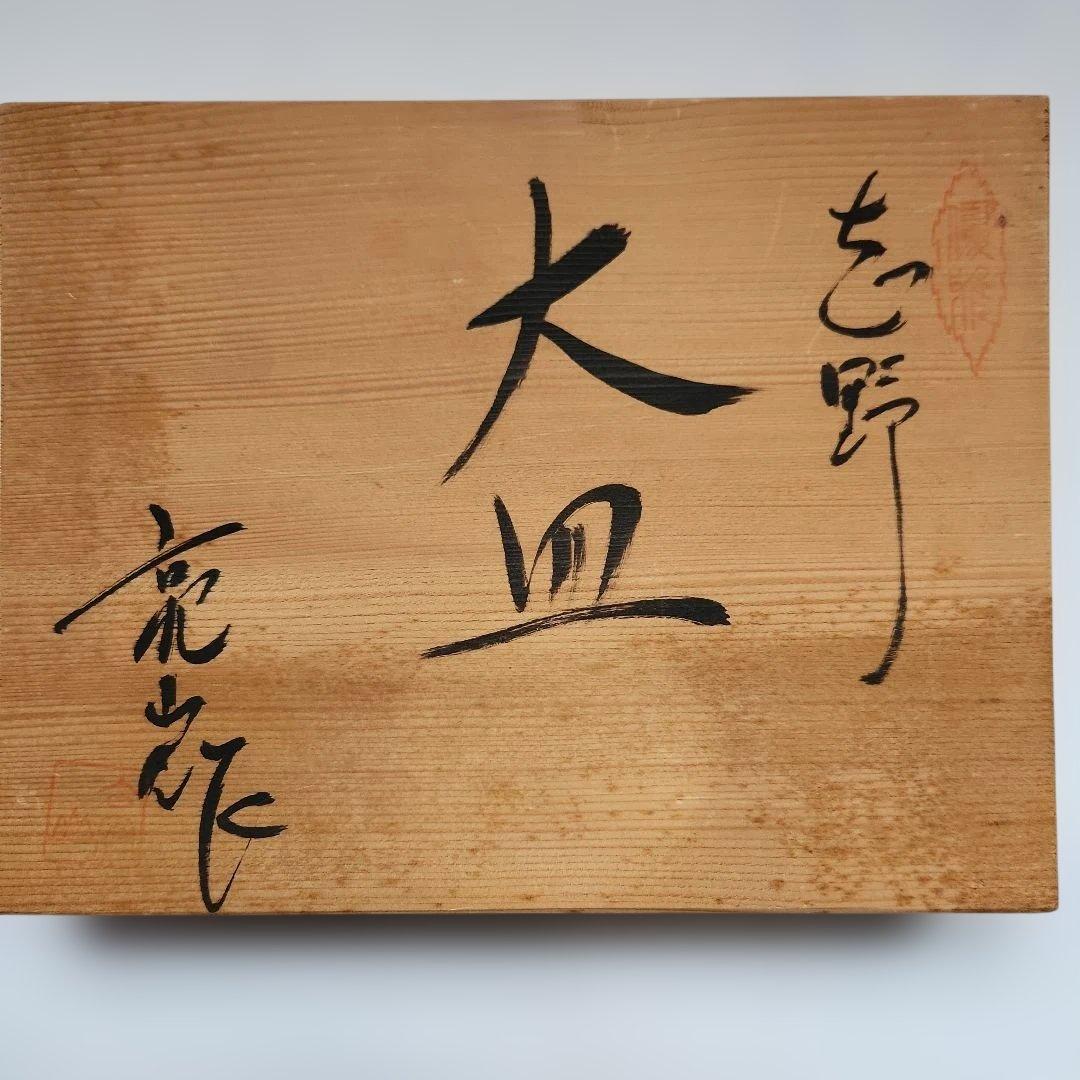 志野
大皿
亮山作